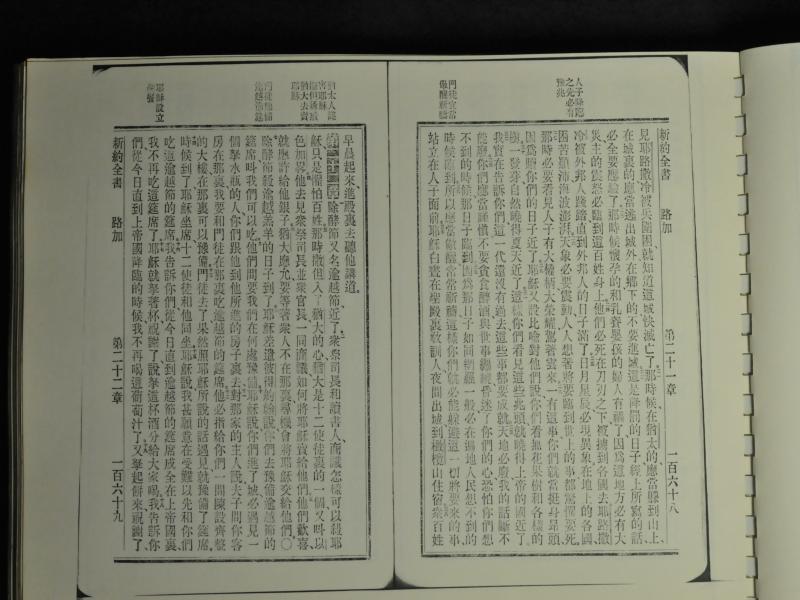 新約全書
路加
第二十一章
一百六十八
人子降臨
之先必有
預兆
門徒宜當
儆醒祈禱
見耶路撒冷被兵圍困就知道這城快滅亡了那時候在猶太的應當躲到山上
在城裏的應當逃出城外在鄉下的不要進城這是降罰的日子經上所寫的話
必全要應驗了那時候懷孕的和乳養嬰孩的婦人有禍了因爲這地方必有大
災主的震怒必臨到這百姓身上他們必死在刀刃之下被擄到各國去耶路撒
冷被外邦人踐踏直到外邦人的日子滿了日月星辰必現異象在地上的各國
困苦顚沛海波澎湃天象必要震動人人想著將要臨到世上的事都驚惶要死
那時必要看見人子有大權柄大榮耀駕著雲來有這事你們就當挺身昂頭
因爲贖你們的日子近了耶穌又設比喻對他們說你們看無花果樹和各樣的
樹發芽自然曉得夏天近了這樣你們看見這些兆頭就曉得上帝的國近了
我實在告訴你們這一代還沒有過去這些事都要成就天地必廢我的話斷不
能廢你們應當謹愼不要貪食醉酒與世事纏繞昏迷了你們的心恐怕你們想
不到的時候那日子臨到因爲那日子如同網羅一般必在遍地人民想不到的
時候臨到所以應當儆醒常常祈禱這樣你們就必能躲避這一切將要來的事
站立在人子面前耶穌白晝在聖殿裏敎訓人夜間出城到橄欖山住宿衆百姓
新約全書
路加
第二十二章
一百六十九
猶太人謀
害耶穌
猶大去賣
耶穌
門徒預備
逾越節筵
耶穌設立
聖餐
早晨起來進殿裏去聽他講道
除酵節又名逾越節近了衆祭司長和讀書人商議怎樣可以殺耶
穌只是懼怕百姓那時撒但入了猶大的心猶大是十二使徒裏的一個又呌以
色加畧他去見衆祭司長並衆官長一同商議如何將耶穌賣給他們他們歡喜
就應許給他銀子猶大應允要等著衆人不在那裏尋機會將耶穌交給他們〇
除酵節殺逾越羔羊的日子到了耶穌差遣彼得約翰說你們去豫備逾越節的
筵席呌我們可以吃他們問要我們在何處豫備耶穌說你們進了城必遇見一
個拏水瓶的人你們跟他到他所進的房子裏去對那家的主人說夫子問你客
房在那裏我要和門徒在那裏吃逾越節的筵席他必指給你們一間擺設齊整
的大樓在那裏可以豫備門徒去了果然照耶穌所說的話遇見就豫備了筵席
時候到了耶穌坐席十二使徒和他同坐耶穌說我甚願意在受難以先和你們
吃這逾越節的筵席我告訴你們從今日直到逾越節的筵席成全在上帝國裏
我不再吃這筵席了耶穌就拏著杯祝謝了說拏這杯酒分給大家喝我告訴你
們從今日直到上帝國降臨的時候我不再喝這葡萄汁了又拏起餅來祝謝了